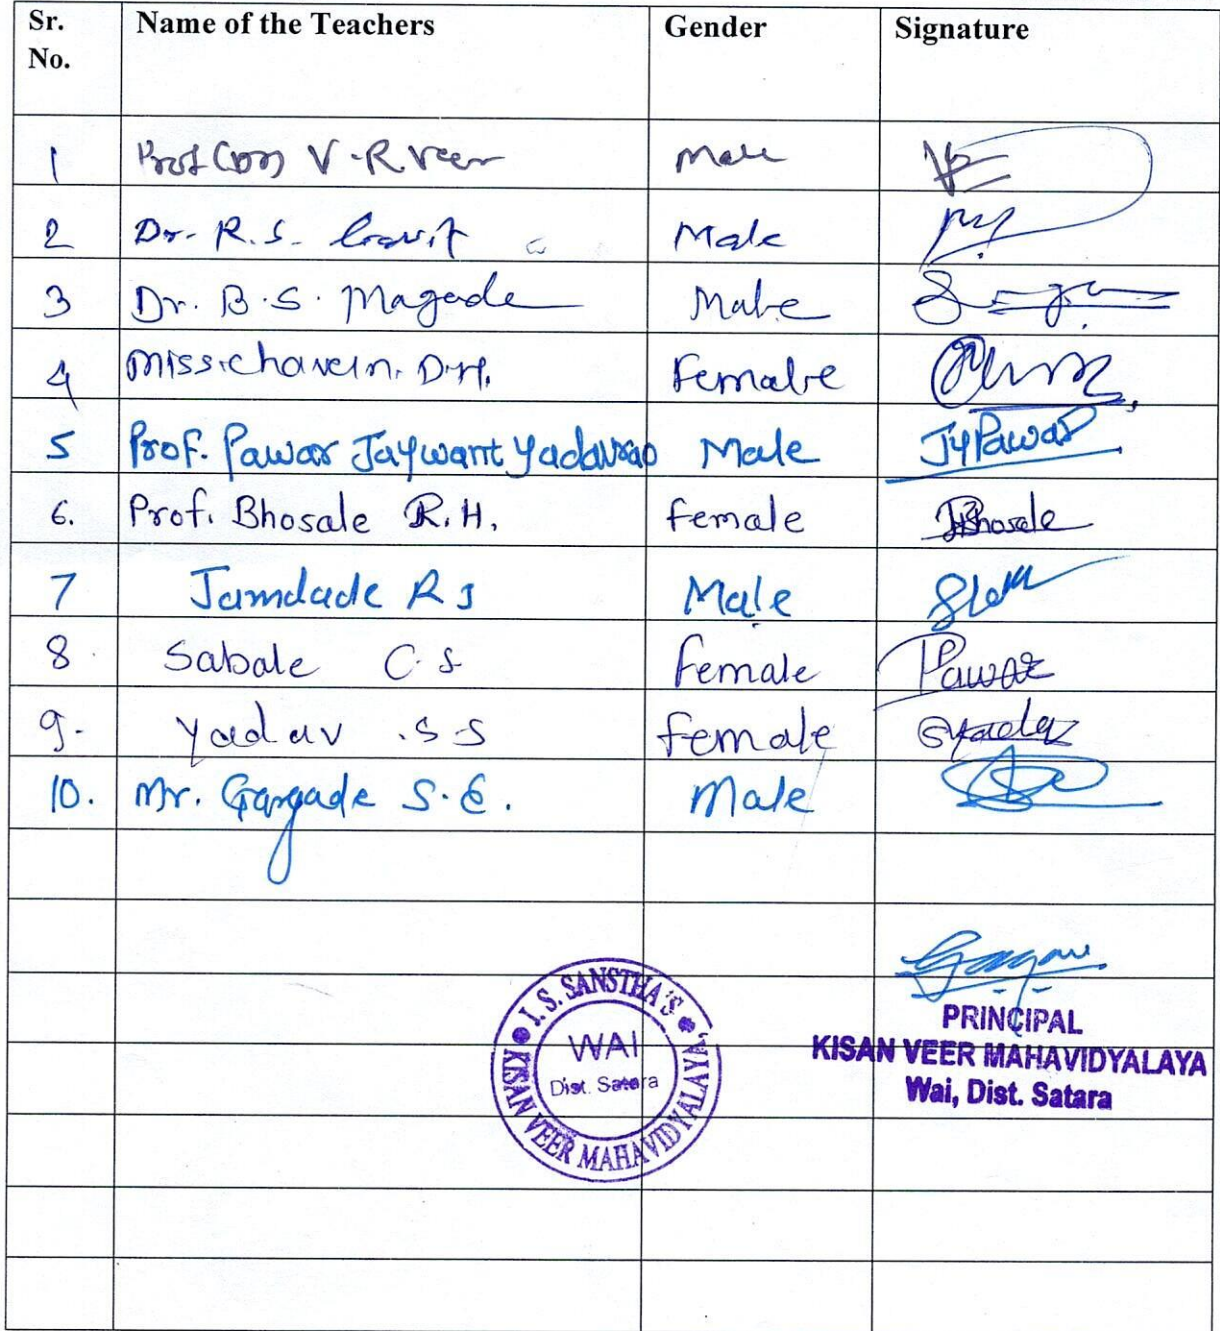 Sr. No. Name of the Teachers Gender Signature
1 Prof (Dr) V.R. Veer Male
2 Dr. R.S. Gavit Male
3 Dr. B.S. Magade Male
4 Miss. Chavan. D.H. Female
5 Prof. Pawar Jaywant Yadavrao Male JYPawar
6. Prof. Bhosale R.H. female Bhosale
7 Jamdade R J Male
8 Sabale C.S female Pawar
9. Yadav .S S female SYadav
10. Mr. Gargade S.E. Male
I. S. SANSTHA'S
KISAN VEER MAHAVIDYALAYA,
WAI
Dist. Satara
PRINCIPAL
KISAN VEER MAHAVIDYALAYA
Wai, Dist. Satara